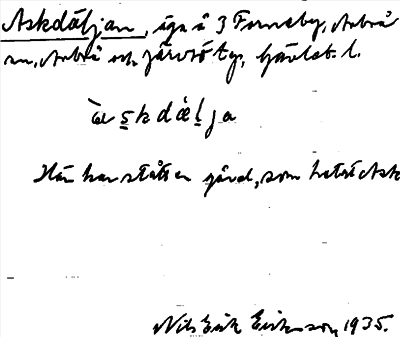 Askdäljan, äga å 3 Forneby, Arbrå
sn, Arbrå och Järvsö tg, Gävleb. l.
`æskdæ̀lja
Här har stått en gård, som hetat Ask
Nils Erik Eriksson 1935.